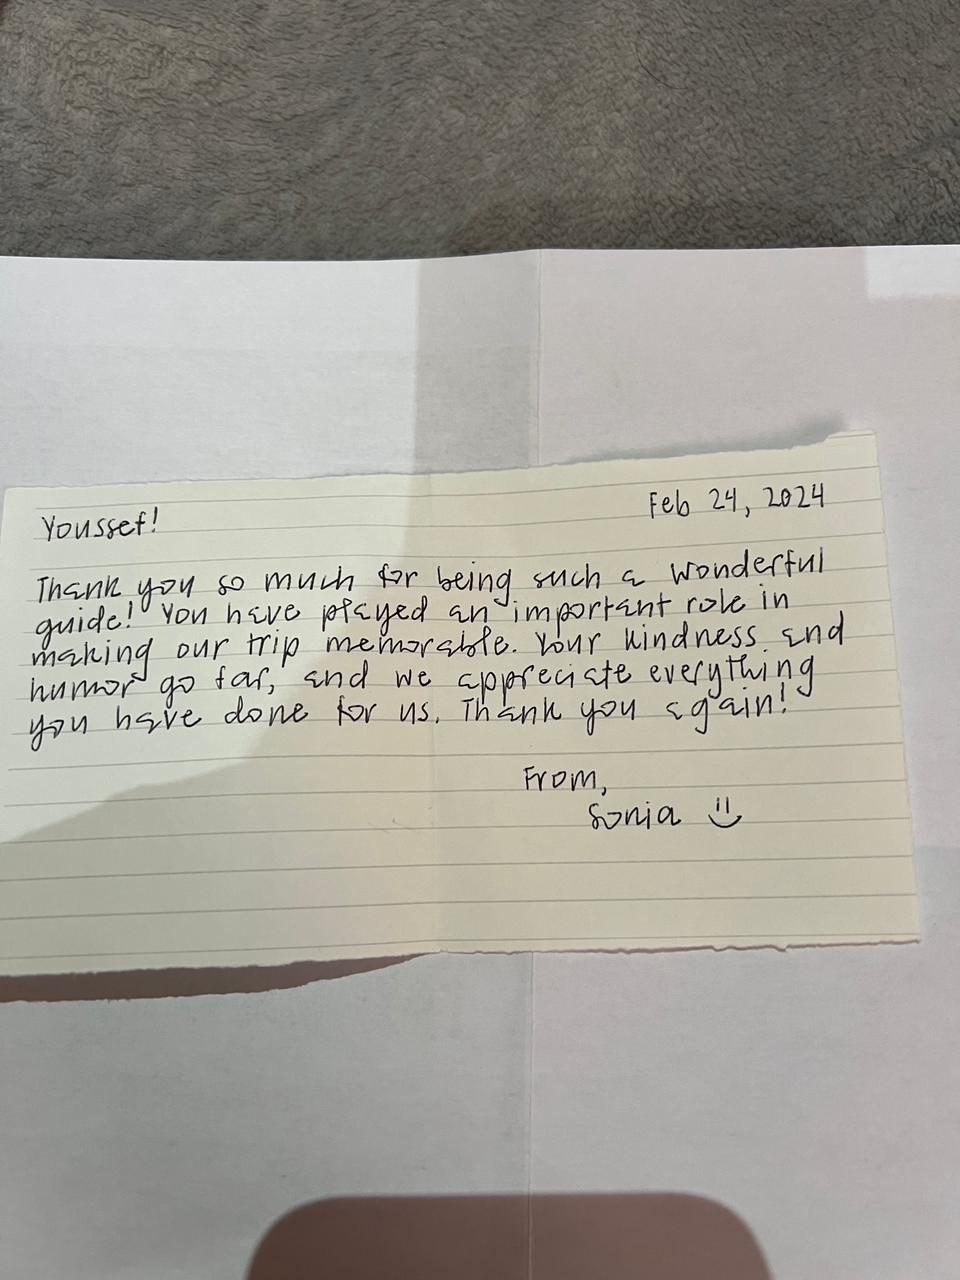 Feb 24, 2024
Youssef!
Thank you so much for being such a wonderful
guide! You have played an important role in
making our trip memorable. Your kindness and
humor go far, and we appreciate everything
you have done for us. Thank you again!
From,
Sonia